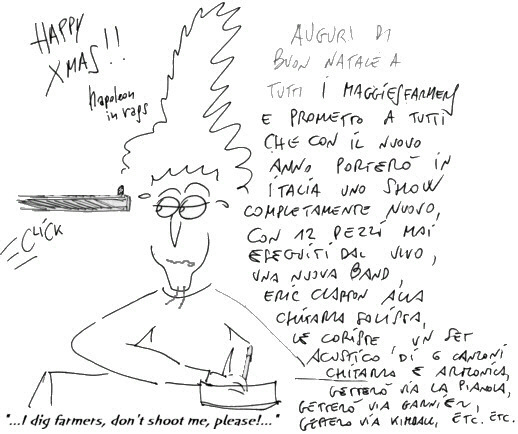 HAPPY
XMAS!!
napoleon
in rags
CLICK
AUGURI DI
BUON NATALE A
TUTTI I MAGGIESFARMERS
E PROMETTO A TUTTI
CHE CON IL NUOVO
ANNO PORTERÒ IN
ITALIA UNO SHOW
COMPLETAMENTE NUOVO,
CON 12 PEZZI MAI
ESEGUITI DAL VIVO,
UNA NUOVA BAND,
ERIC CLAPTON ALLA
CHITARRA SOLISTA,
LE CORISTE, UN SET
ACUSTICO DI 6 CANZONI
CHITARRA E ARMONICA,
GETTERÒ VIA LA PIANOLA,
GETTERÒ VIA GARNIER,
GETTERÒ VIA KIMBALL, ETC. ETC.
"...I dig farmers, don't shoot me, please!..."